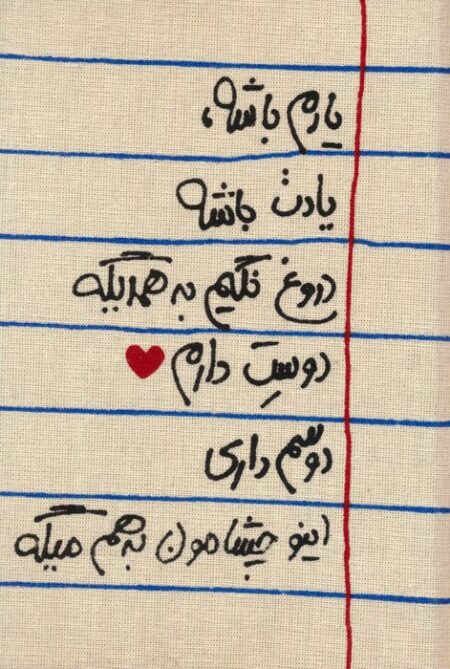 یارم باشه،
یادت باشه
دروغ نگیم به همدیگه
دوستِ دارم
دوسم داری
اینو چشامون به هم میگه